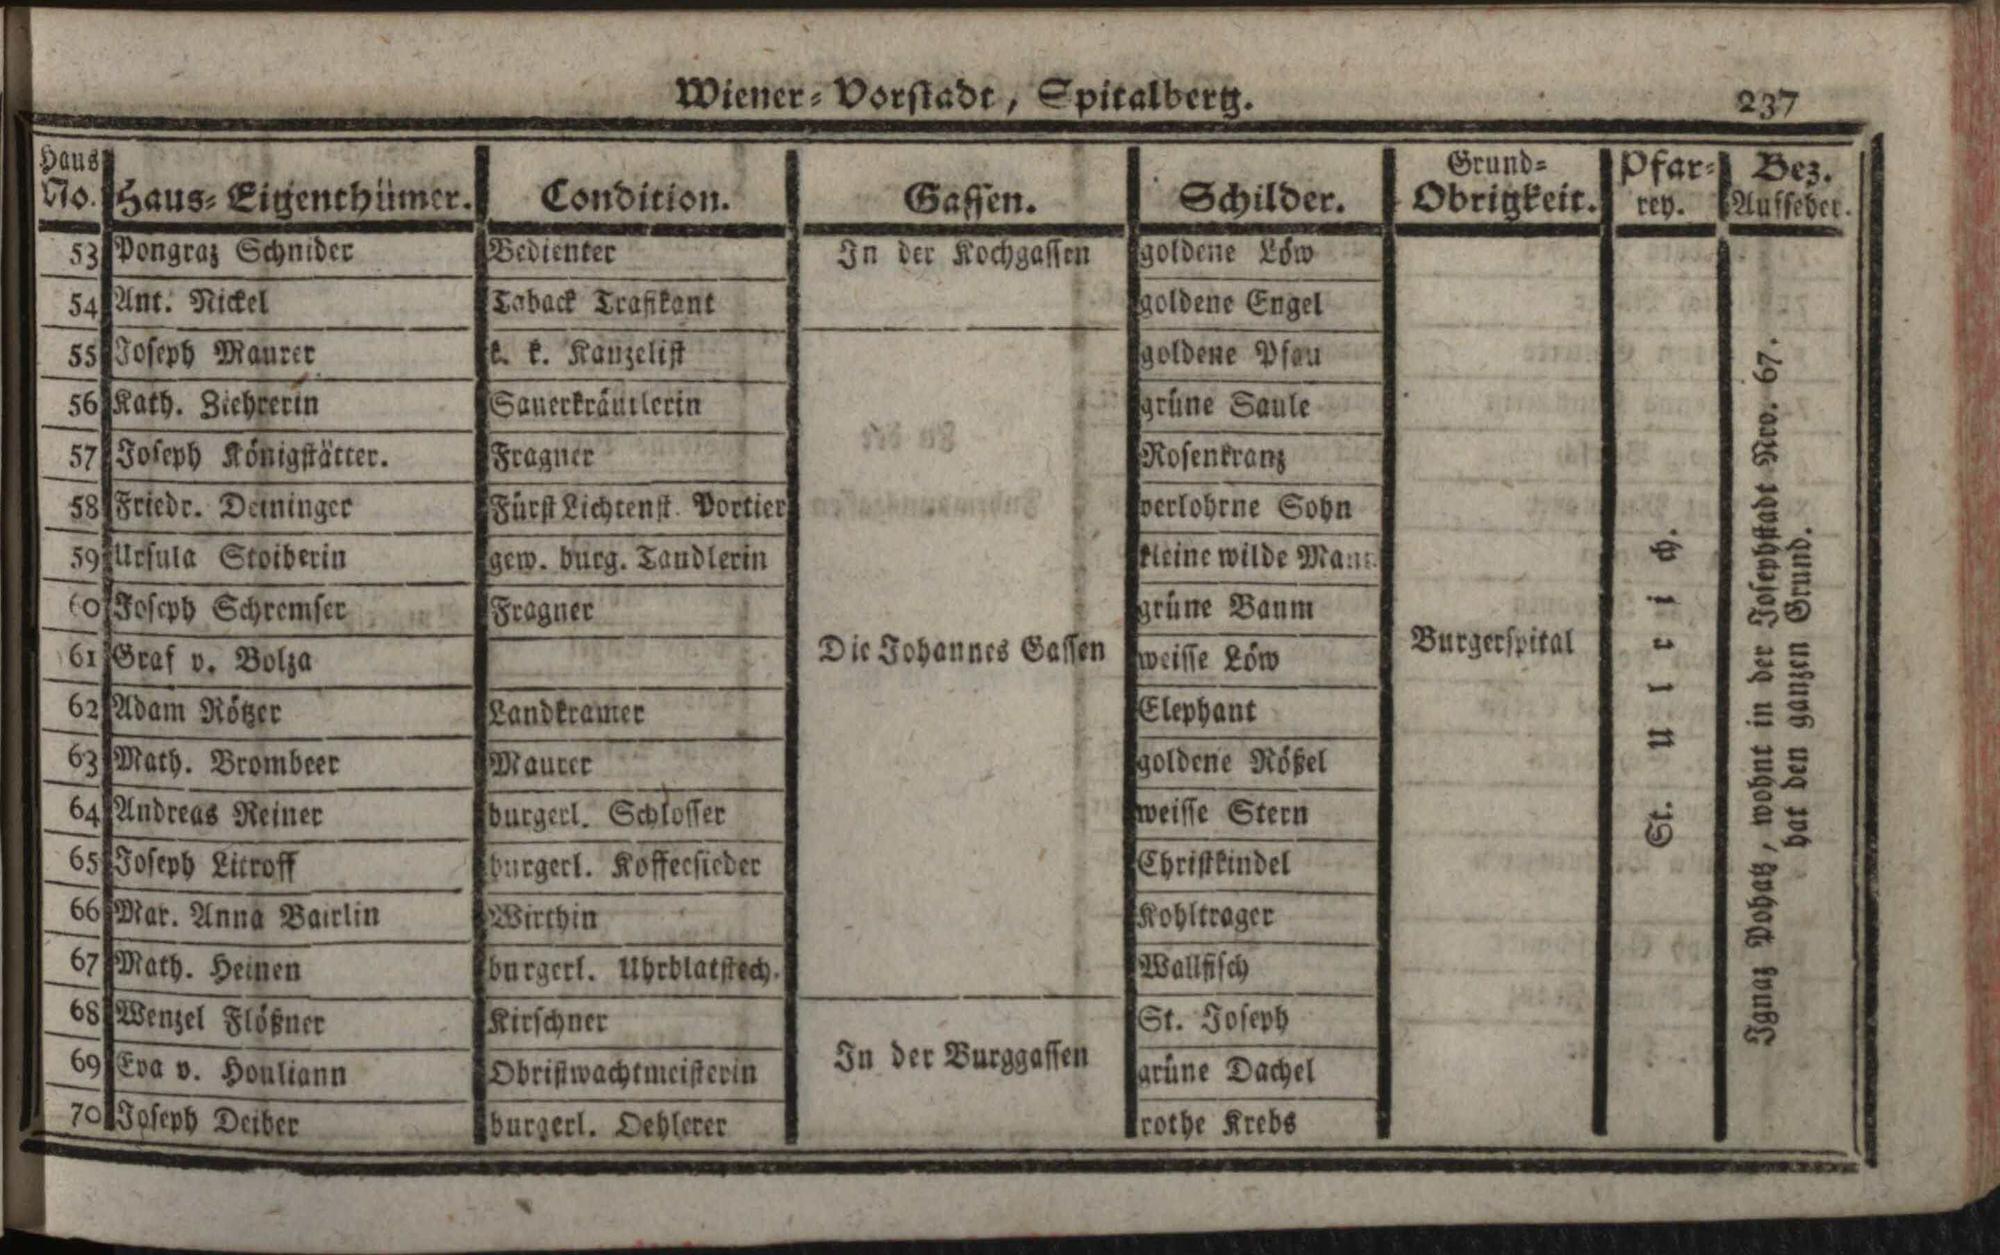 Wiener-Vorstadt, Spitalberg. 237
Haus No. Haus-Eigenthümer. Condition. Gassen. Schilder. Grund-Obrigkeit. Pfar-rey. Bez. Aufseher.
53 Pongraz Schnider Bedienter In der Kochgassen goldene Löw
54 Ant. Nickel Taback Trafikant goldene Engel
55 Joseph Maurer k. k. Kanzelist goldene Pfau
56 Kath. Ziehrerin Sauerkräutlerin grüne Saule
57 Joseph Königstätter. Fragner Rosenkranz
58 Friedr. Deininger Fürst Lichtenst. Portier verlohrne Sohn
59 Ursula Stoiberin gew. burg. Tandlerin kleine wilde Mann
60 Joseph Schremser Fragner grüne Baum
61 Graf v. Bolza Die Johannes Gassen weisse Löw Burgerspital
62 Adam Rötzer Landkramer Elephant
63 Math. Brombeer Maurer goldene Rößel
64 Andreas Reiner burgerl. Schlosser weisse Stern
65 Joseph Litroff burgerl. Koffeesieder Christkindel
66 Mar. Anna Bairlin Wirthin Kohltrager
67 Math. Heinen burgerl. Uhrblatstech. Wallfisch
68 Wenzel Flößner Kirschner St. Joseph
69 Eva v. Houliann Obristwachtmeisterin In der Burggassen grüne Dachel
70 Joseph Deiber burgerl. Oehlerer rothe Krebs
St. Ulrich.
Ignaz Pohatz, wohnt in der Josephstadt Nro. 67.
hat den ganzen Grund.